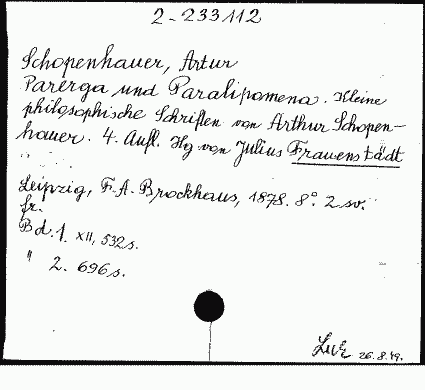 2-233112
Schopenhauer, Artur
Parerga und Paralipomena. Kleine
philosophische Schriften von Arthur Schopen-
hauer. 4. Aufl. Hg von Julius Frauenstädt
Leipzig, F. A. Brockhaus, 1878. 8°. 2 sv.
fr.
Bd. 1. XII, 532 s.
" 2. 696 s.
26.8.49.